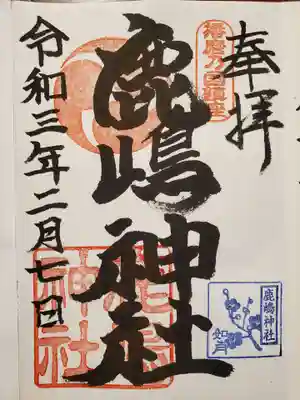 奉拝
播磨乃国鎮座
鹿嶋神社
令和三年二月七日
神社
鹿嶋神社
如月